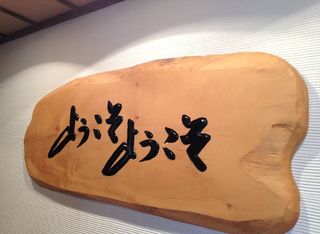 ようこそようこそ